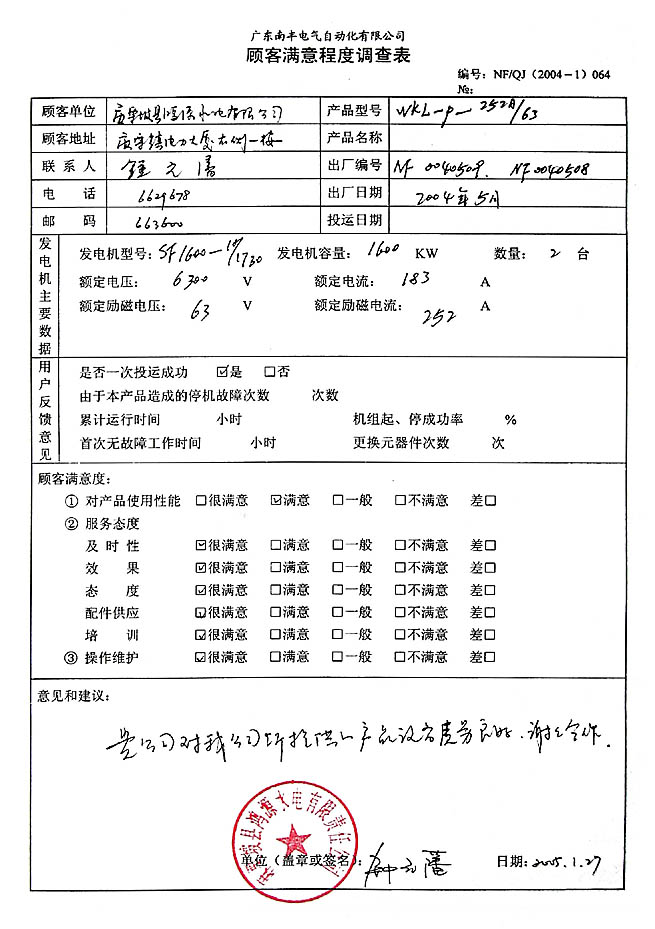 广东南丰电气自动化有限公司
顾客满意程度调查表
编号：NF/QJ（2004－1）064
№:
顾客单位 产品型号 WKL-P-252A/63
顾客地址 产品名称
联系人 出厂编号 NF 0040509. NF0040508
电话 6629678 出厂日期 2004年5月
邮码 663600 投运日期
发电机主要数据
发电机型号: SF1600-10/1730 发电机容量: 1600 KW 数量: 2 台
额定电压: 6300 V 额定电流: 183 A
额定励磁电压: 63 V 额定励磁电流: 252 A
用户反馈意见
是否一次投运成功 ☑是 □否
由于本产品造成的停机故障次数 次数
累计运行时间 小时 机组起、停成功率 %
首次无故障工作时间 小时 更换元器件次数 次
顾客满意度:
① 对产品使用性能 □很满意 ☑满意 □一般 □不满意 差□
② 服务态度
及时性 ☑很满意 □满意 □一般 □不满意 差□
效果 ☑很满意 □满意 □一般 □不满意 差□
态度 ☑很满意 □满意 □一般 □不满意 差□
配件供应 ☑很满意 □满意 □一般 □不满意 差□
培训 ☑很满意 □满意 □一般 □不满意 差□
③ 操作维护 ☑很满意 □满意 □一般 □不满意 差□
意见和建议:
贵公司对我公司所提供产品设备质量良好，谢谢合作.
县鸿源水电有限责任公司
单位（盖章或签名）:
日期: 2005.1.27